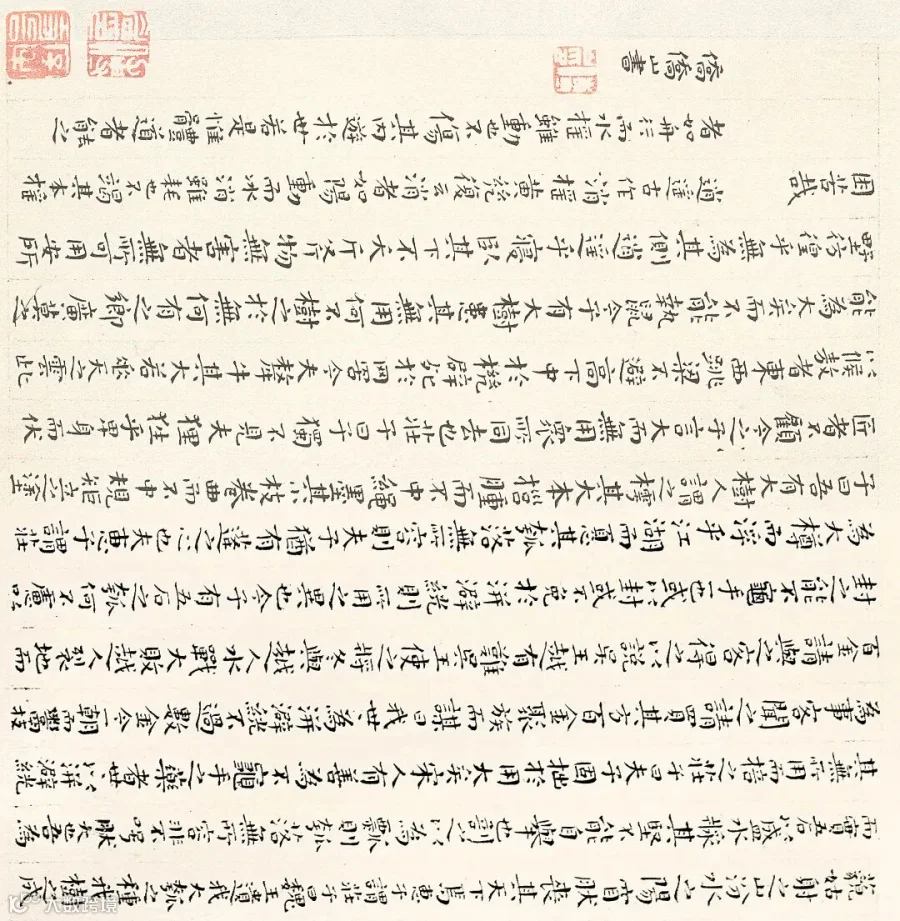 藐姑射之山汾水之陽窅然喪其天下焉惠子謂莊子曰魏王遺我大瓠之種我樹之成
而實五石以盛水漿其堅不能自舉也剖之以為瓢則瓠落無所容非不呺然大也吾為
其無用而掊之莊子曰夫子固拙於用大矣宋人有善為不龜手之藥者世以洴澼絖
為事客聞之請買其方百金聚族而謀曰我世為洴澼絖不過數金今一朝而鬻技
百金請與之客得之以說吳王越有難吳王使之將冬與越人水戰大敗越人裂地而
封之能不龜手一也或以封或不免於洴澼絖則所用之異也今子有五石之瓠何不慮以
為大樽而浮乎江湖而憂其瓠落無所容則夫子猶有蓬之心也夫惠子謂莊
子曰吾有大樹人謂之樗其大本擁腫而不中繩墨其小枝卷曲而不中規矩立之塗
匠者不顧今之子言大而無用眾所同去也莊子曰子獨不見夫狸狌乎卑身而伏
以候敖者東西跳梁不避高下中於機辟死於罔罟今夫斄牛其大若垂天之雲此
能為大矣而不能執鼠今子有大樹患其無用何不樹之於無何有之鄉廣莫之
野彷徨乎無為其側逍遙乎寢臥其下不夭斤斧物無害者無所可用安所
困苦哉
逍遙古作消搖黃統復云消者如陽動而冰消雖耗也不竭其本搖
者如舟行而水搖雖動也不傷其內遊於世若是惟體道者能之
僑僑山書
大數跨境